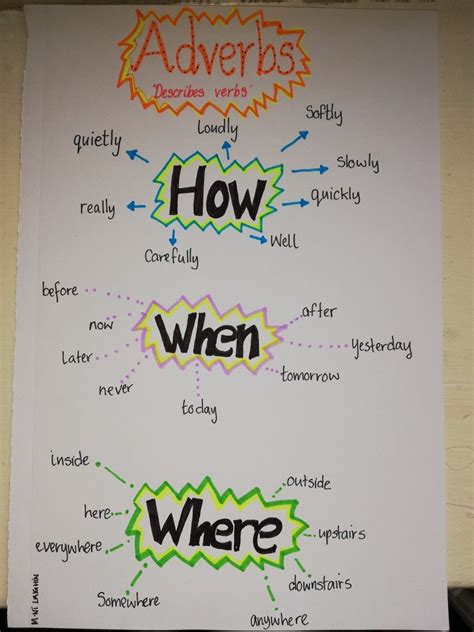 Adverbs
"Describes verbs"
Loudly
Softly
quietly
Slowly
How
quickly
really
Well
Carefully
before
after
now
When
yesterday
Later
tomorrow
never
today
inside
outside
here
Where
upstairs
everywhere
downstairs
Somewhere
anywhere